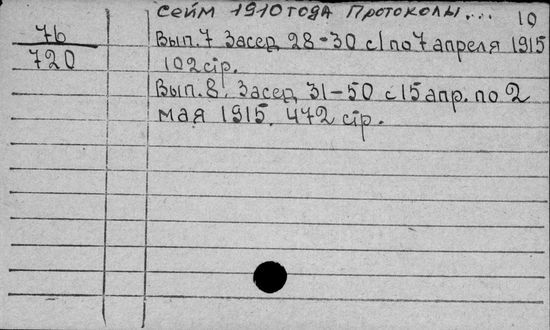 Сейм 1910 года Протоколы... 10
76
720
Вып. 7 Засед 28-30 с 1 по 7 апреля 1915
102 стр.
Вып. 8. Засед 31-50 с 15 апр. по 2
мая 1915. 472 стр.